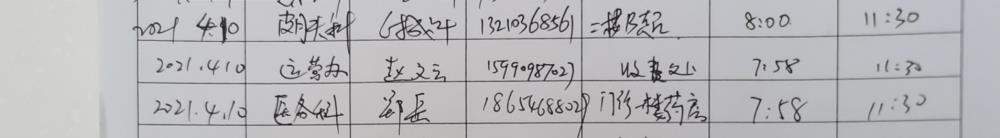 2021 4.10 皮肤科 13210368561 二楼 8:00 11:30
2021.4.10 运营办 赵文云 15990987027 收费处 7:58 11:30
2021.4.10 医务科 18654688027 门诊一楼药店 7:58 11:30